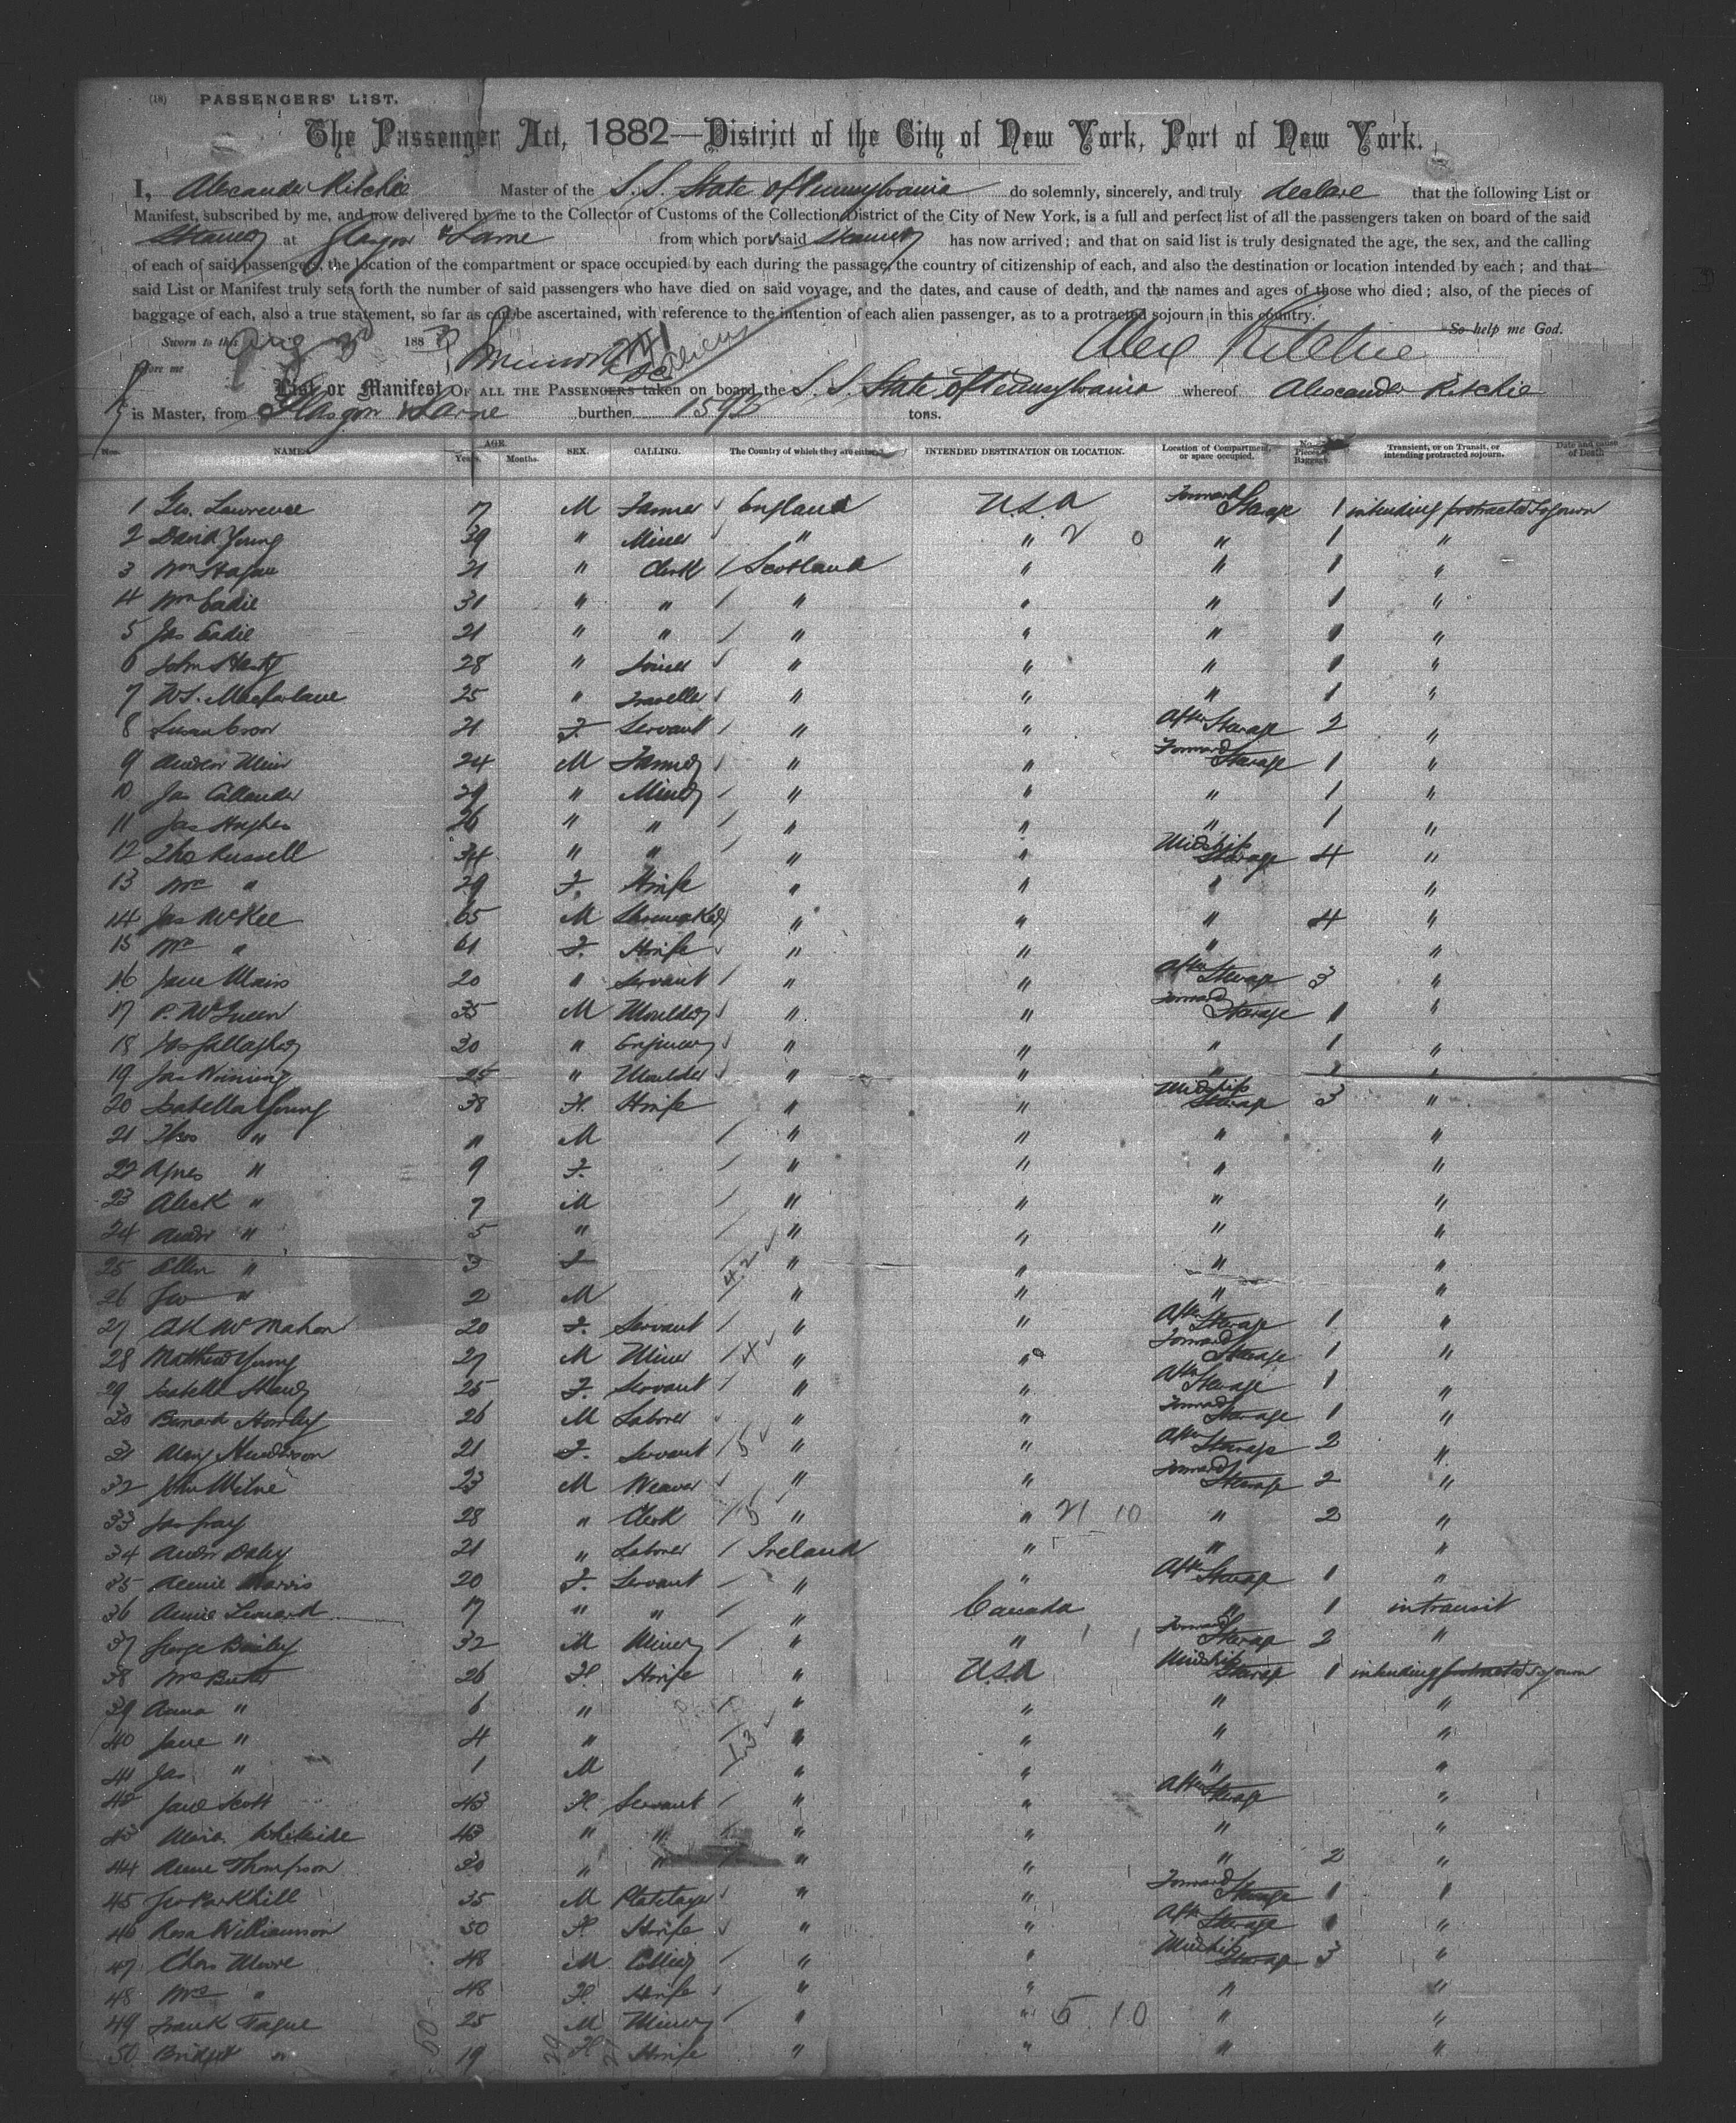 (18) PASSENGERS' LIST.
The Passenger Act, 1882—District of the City of New York, Port of New York.
I, Alexander Ritchie Master of the S.S. State of Pennsylvania do solemnly, sincerely, and truly declare that the following List or
Manifest, subscribed by me, and now delivered by me to the Collector of Customs of the Collection District of the City of New York, is a full and perfect list of all the passengers taken on board of the said
Steamer at Glasgow & Larne from which port said Steamer has now arrived; and that on said list is truly designated the age, the sex, and the calling
of each of said passengers, the location of the compartment or space occupied by each during the passage, the country of citizenship of each, and also the destination or location intended by each; and that
said List or Manifest truly sets forth the number of said passengers who have died on said voyage, and the dates, and cause of death, and the names and ages of those who died; also, of the pieces of
baggage of each, also a true statement, so far as can be ascertained, with reference to the intention of each alien passenger, as to a protracted sojourn in this country. So help me God.
Sworn to this Aug 188 Alex Ritchie
fore me
List or Manifest OF ALL THE PASSENGERS taken on board the S.S. State of Pennsylvania whereof Alexander Ritchie
is Master, from Glasgow & Larne burthen tons.
Nos. NAMES. AGE. Years. Months. SEX. CALLING. The Country of which they are citizens. INTENDED DESTINATION OR LOCATION. Location of Compartment, or space occupied. No. Pieces Baggage. Transient, or on Transit, or intending protracted sojourn. Date and cause of Death
1 Geo. Lawrence 17 M Farmer England U.S.A Forward Steerage 1 intending protracted Sojourn
2 David Young 39 " Miner " " 2 0 " 1 "
3 Wm Hagan 21 " Clerk Scotland " " 1 "
4 Wm Eadie 31 " " " " " 1 "
5 Jas Eadie 21 " " " " " 1 "
6 John Hasty 28 " Joiner " " " 1 "
7 W.S. Macfarlane 25 " Traveller " " " 1 "
8 Susan 21 F. Servant " " After Steerage 2 "
9 Andrew Muir 24 M Farmer " " Forward Steerage 1 "
10 Jas Callander 29 " Miner " " " 1 "
11 Jas Hughes 26 " " " " " 1 "
12 Tho Russell 34 " " " " Midship Steerage 4 "
13 Mrs " 29 F. Wife " " " "
14 Jas McKee 65 M Shoemaker " " " 4 "
15 Mrs " 61 F. Wife " " " "
16 Jane 20 " Servant " " After Steerage 3 "
17 P. McQueen 35 M Moulder " " Forward Steerage 1 "
18 Jas Gallagher 30 " Engineer " " " 1 "
19 Jas Winning 25 " Moulder " " " "
20 Isabella Young 38 F. Wife " " Midship Steerage 3 "
21 Thos " 11 M " " " "
22 Agnes " 9 F. " " " "
23 Aleck " 7 M " " " "
24 Andw " 5 " " " " "
25 Ellen " 3 F " " " "
26 Jno " 2 M " " " "
27 Cath McMahon 20 F. Servant " " After Steerage 1 "
28 Matthew Young 27 M Miner " " Forward Steerage 1 "
29 Isabella 25 F. Servant " " After Steerage 1 "
30 Bernard 26 M Laborer " " Forward Steerage 1 "
31 Mary Henderson 21 F. Servant " " After Steerage 2 "
32 John Milne 23 M Weaver " " Forward Steerage 2 "
33 Jas Gray 28 " Clerk " " 21 10 " 2 "
34 Andw Daley 21 " Laborer Ireland " " "
35 Annie 20 F. Servant " " After Steerage 1 "
36 Annie Leonard 17 " " " Canada " 1 in transit
37 George Bailey 32 M Miner " " 1 1 Forward Steerage 2 "
38 Mrs 26 F. Wife " U.S.A Midship Steerage 1 intending protracted Sojourn
39 Anna " 6 " " " " "
40 Jane " 4 " " " " "
41 Jas " 1 M " " " "
42 Jane Scott 43 F. Servant " " After Steerage "
43 Maria Whiteside 43 " " " " " "
44 Annie Thompson 30 " " " " " 2 "
45 Jno Parkhill 35 M Platelayer " " Forward Steerage 1 "
46 Rosa Williamson 50 F. Wife " " After Steerage 1 "
47 Chas Moore 48 M Collier " " Midship Steerage 3 "
48 Mrs " 48 F. Wife " " " "
49 Frank Tague 25 M Miner " " 5 10 " "
50 Bridget " 19 F Wife " " " "